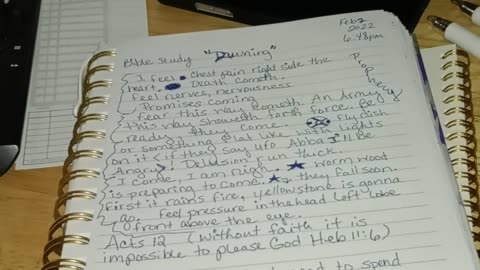 Feb 2
2022
6:48pm
Bible Study "Dawning"
Prophecy
I feel chest pain right side the
heart. Death cometh.
feel nerves, nervousness
Promises coming
fear this day cometh. An Army
This day showeth forth force. Be
ready they come. Fly dish
or something that live with lights
on it < if they say UFO Abba I'll Be
Angry > ! Delusion fun thick
I come, I am nigh. worm wood
is preparing to come. they fall soon.
First it rains fire, yellowstone is gonna
go. Feel pressure in the head left lobe
front above the eye.
Acts 12 (Without faith it is
impossible to please God Heb 11:6)
to spend